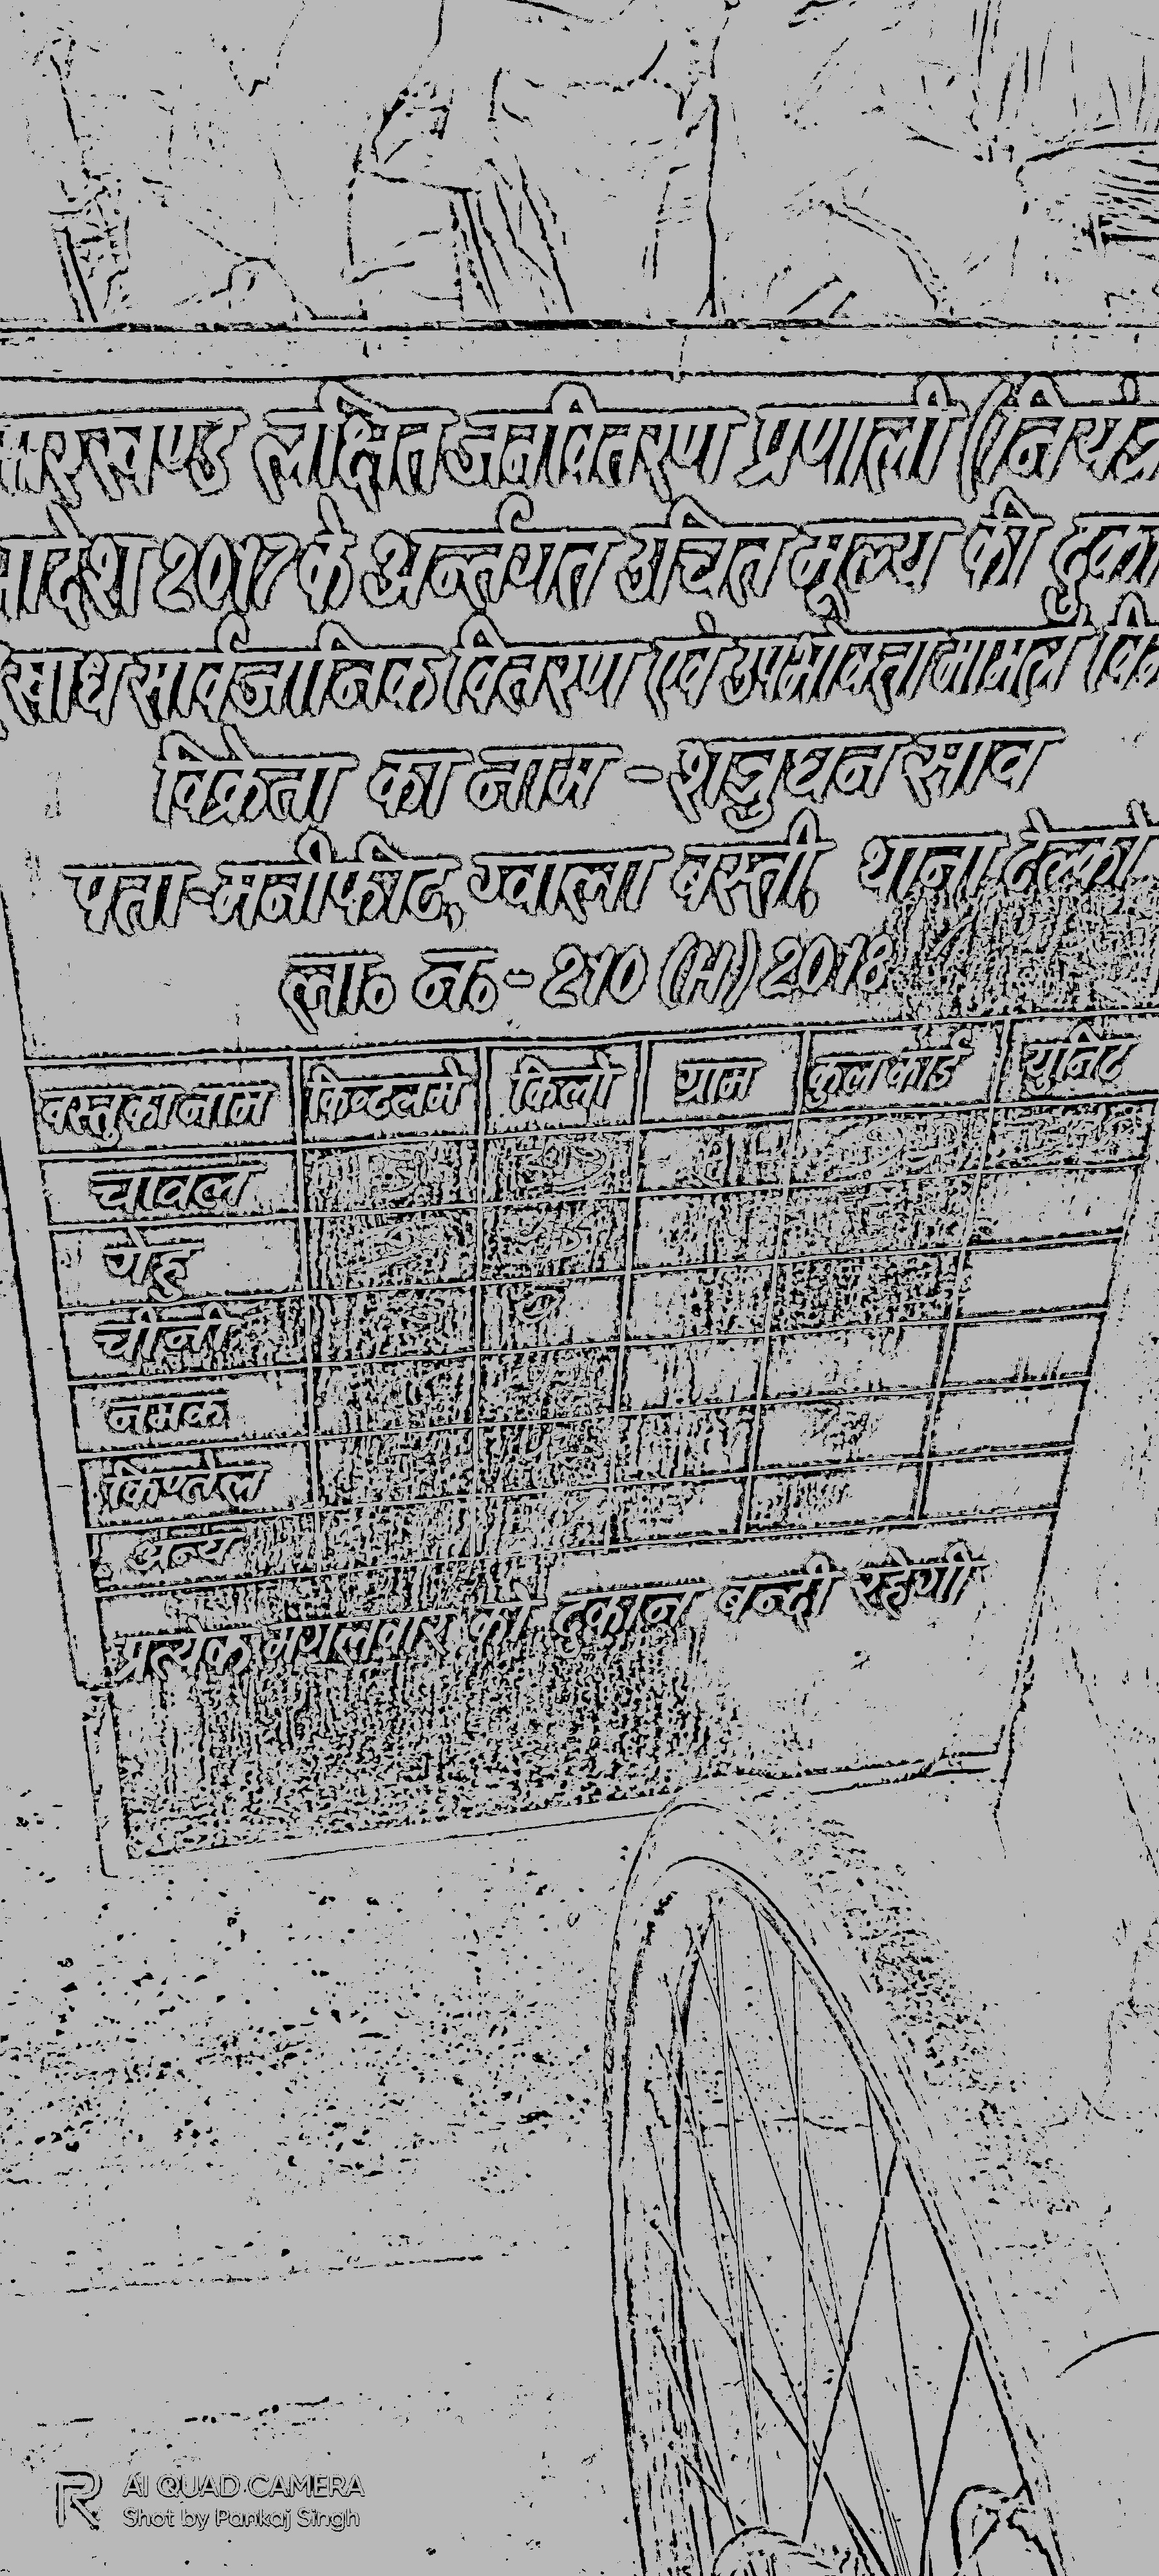 झारखण्ड लक्षित जनवितरण प्रणाली (नियंत्र
आदेश 2017 के अर्न्तगत उचित मूल्य की दुका
खाद्य सार्वजानिक वितरण एवं उपभोक्ता मामले वि
विक्रेता का नाम - शत्रुघन साव
पता - मनीफीट, ग्वाला बस्ती, थाना टेल्को
ला० न० - 210 (H) 2018
वस्तु का नाम किव्टलमे किलो ग्राम कुल कार्ड युनिट
चावल
गेहु
चीनी
नमक
किप्तेल
अन्य
प्रत्येक मंगलवार को दुकान बन्दी रहेगी
AI QUAD CAMERA
Shot by Pankaj Singh